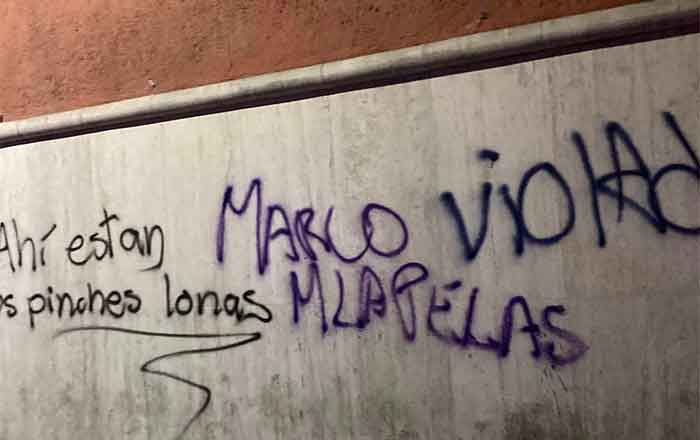 Ahí estan
s pinches lonas
MARCO
MLAPELAS
VIOlAd